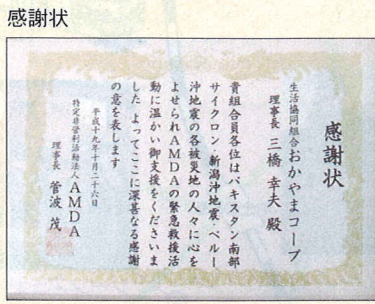 感謝状
感謝状
生活協同組合おかやまコープ
理事長 三橋 幸夫 殿
貴組合員各位はパキスタン南部
サイクロン・新潟沖地震・ペルー
沖地震の各被災地の人々に心を
よせられAMDAの緊急救援活
動に温かい御支援をくださいま
した よってここに深甚なる感謝
の意を表します
平成十九年十月二十六日
特定非営利活動法人AMDA
理事長 菅波 茂